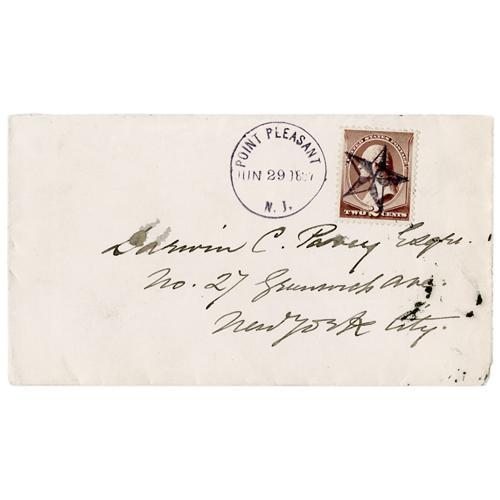 POINT PLEASANT
JUN 29 18
N. J.
UNITED STATES POSTAGE
TWO 2 CENTS
Darwin C. Pavey Esqre.
No. 27 Greenwich Ave.
New York City.